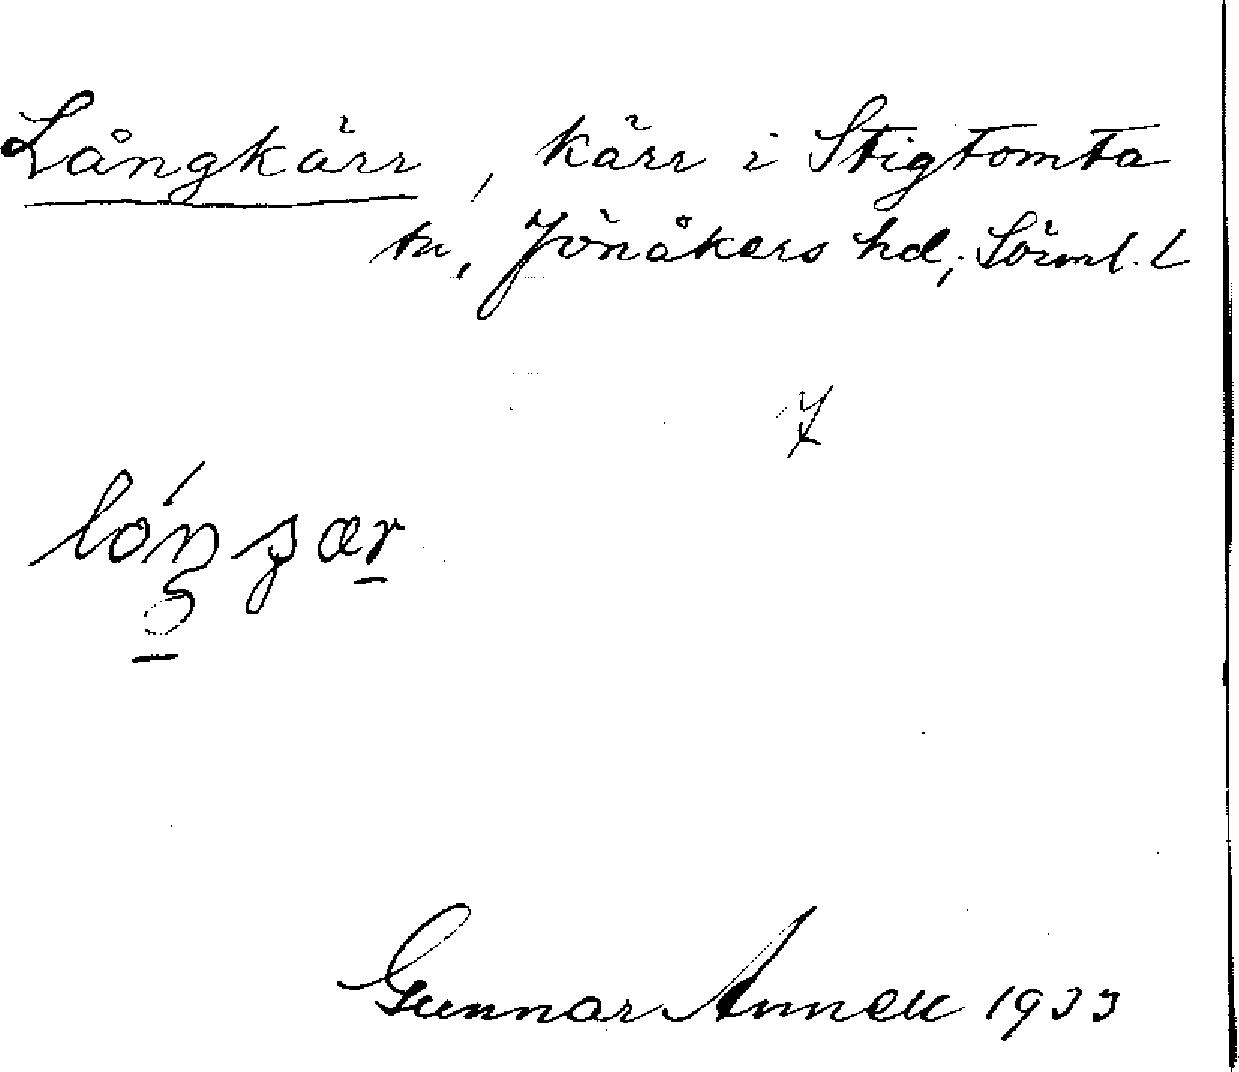 Långkärr, kärr i Stigtomta
sn, Jönåkers hd, Sörml. L
Gunnar Annell 1933